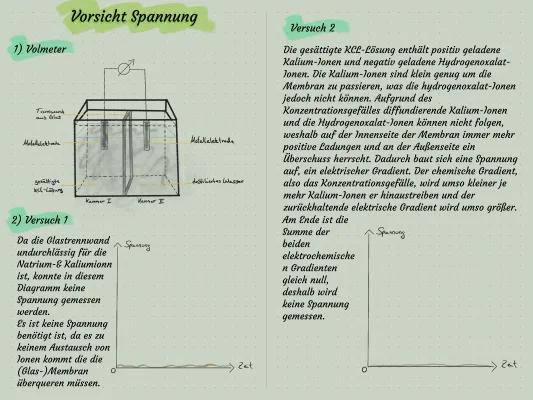 Vorsicht Spannung
1) Volmeter
Trennwand
aus Glas
Metallelektrode
Metallelektrode
gesättigte
KCl-Lösung
destilliertes Wasser
Kammer I
Kammer II
2) Versuch 1
Da die Glastrennwand
undurchlässig für die
Natrium-& Kaliumionn
ist, konnte in diesem
Diagramm keine
Spannung gemessen
werden.
Es ist keine Spannung
benötigt ist, da es zu
keinem Austausch von
Ionen kommt die die
(Glas-)Membran
überqueren müssen.
Spannung
0
Zeit
Versuch 2
Die gesättigte KCL-Lösung enthält positiv geladene
Kalium-Ionen und negativ geladene Hydrogenoxalat-
Ionen. Die Kalium-Ionen sind klein genug um die
Membran zu passieren, was die hydrogenoxalat-Ionen
jedoch nicht können. Aufgrund des
Konzentrationsgefälles diffundierende Kalium-Ionen
und die Hydrogenoxalat-Ionen können nicht folgen,
weshalb auf der Innenseite der Membran immer mehr
positive Ladungen und an der Außenseite ein
Überschuss herrscht. Dadurch baut sich eine Spannung
auf, ein elektrischer Gradient. Der chemische Gradient,
also das Konzentrationsgefälle, wird umso kleiner je
mehr Kalium-Ionen er hinaustreiben und der
zurückhaltende elektrische Gradient wird umso größer.
Am Ende ist die
Summe der
beiden
elektrochemische
n Gradienten
gleich null,
deshalb wird
keine Spannung
gemessen.
Spannung
0
Zeit